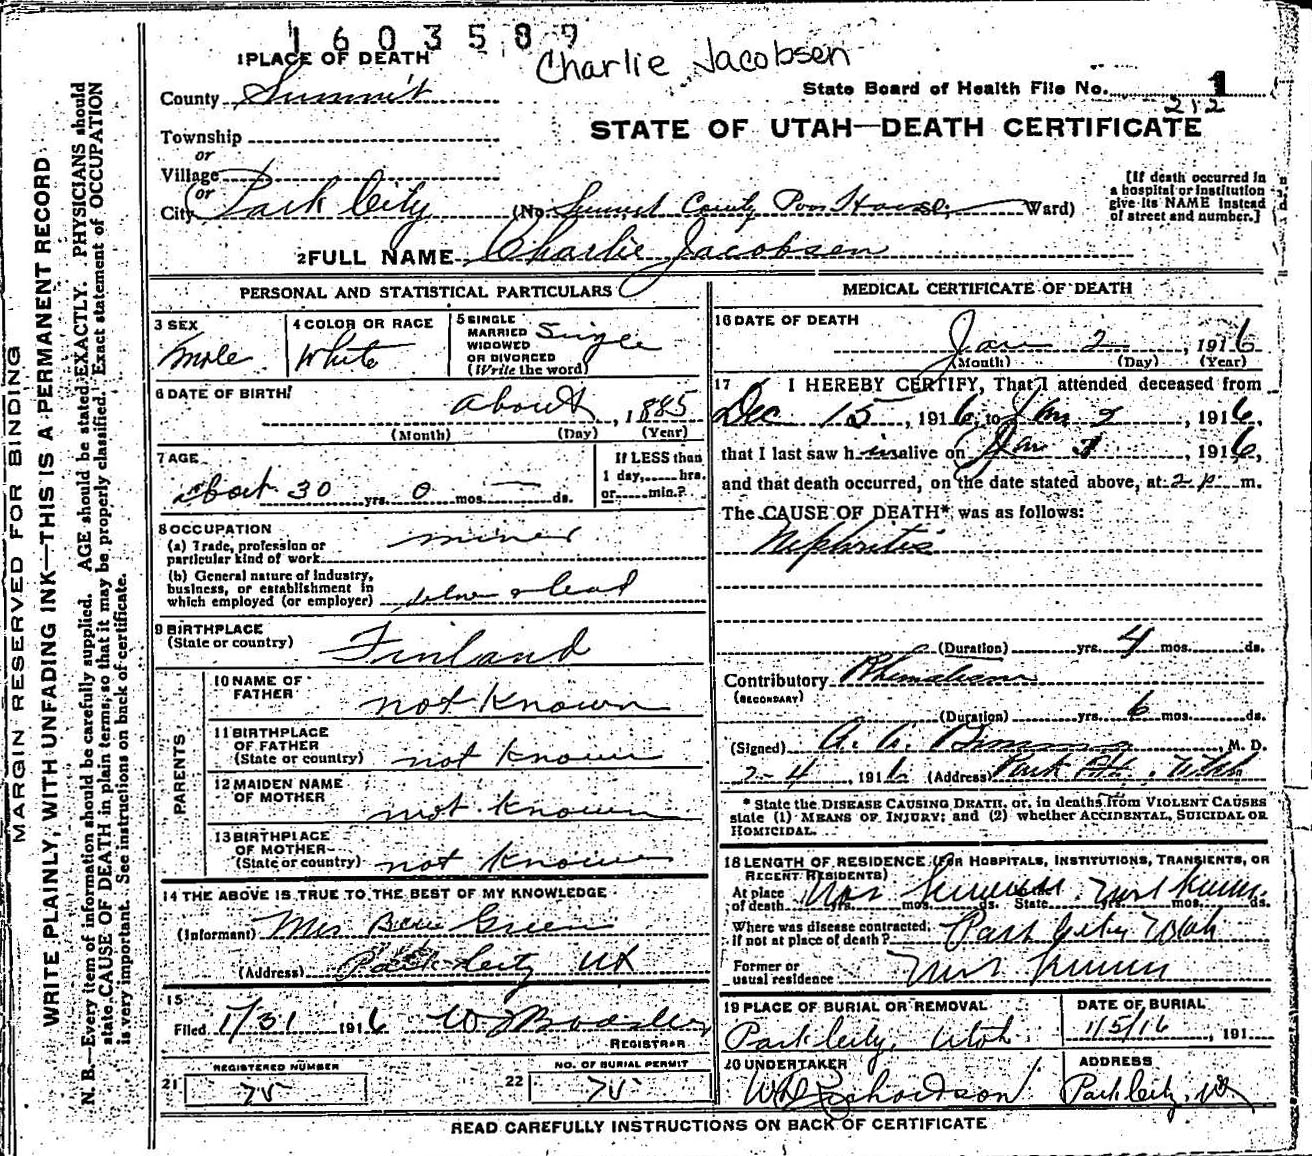 1603589
Charlie Jacobsen
1 PLACE OF DEATH
County Summit
State Board of Health File No. 1
212
Township
STATE OF UTAH—DEATH CERTIFICATE
or
Village
or
City Park City (No. Summit County Poor House Ward)
[If death occurred in
a hospital or institution
give its NAME instead
of street and number.]
2 FULL NAME Charlie Jacobsen
PERSONAL AND STATISTICAL PARTICULARS
3 SEX
male
4 COLOR OR RACE
White
5 SINGLE
MARRIED
WIDOWED
OR DIVORCED
(Write the word)
Single
6 DATE OF BIRTH
about, 1885
(Month) (Day) (Year)
7 AGE
about 30 yrs. 0 mos. — ds.
If LESS than
1 day, hrs.
or min.?
8 OCCUPATION
(a) Trade, profession or
particular kind of work miner
(b) General nature of industry,
business, or establishment in
which employed (or employer) silver & lead
9 BIRTHPLACE
(State or country) Finland
PARENTS
10 NAME OF
FATHER not known
11 BIRTHPLACE
OF FATHER
(State or country) not known
12 MAIDEN NAME
OF MOTHER not known
13 BIRTHPLACE
OF MOTHER
(State or country) not known
14 THE ABOVE IS TRUE TO THE BEST OF MY KNOWLEDGE
(Informant) Mrs Green
(Address) Park City Ut
15
Filed 1/31 1916
REGISTRAR
REGISTERED NUMBER
21 75
NO. OF BURIAL PERMIT
22 75
MEDICAL CERTIFICATE OF DEATH
16 DATE OF DEATH
Jan 2, 1916
(Month) (Day) (Year)
17 I HEREBY CERTIFY, That I attended deceased from
Dec 15, 1916, to Jan 2, 1916,
that I last saw him alive on Jan, 1916,
and that death occurred, on the date stated above, at 2 p m.
The CAUSE OF DEATH* was as follows:
Nephritis
(Duration) yrs. 4 mos. ds.
Contributory Rhematism
(SECONDARY)
(Duration) yrs. 6 mos. ds.
(Signed) M. D.
2-4, 1916 (Address) Park City, Utah
* State the DISEASE CAUSING DEATH, or, in deaths from VIOLENT CAUSES
state (1) MEANS OF INJURY; and (2) whether ACCIDENTAL, SUICIDAL OR
HOMICIDAL.
18 LENGTH OF RESIDENCE (FOR HOSPITALS, INSTITUTIONS, TRANSIENTS, OR
RECENT RESIDENTS)
At place
of death yrs. mos. ds. State yrs. mos. ds.
Where was disease contracted,
if not at place of death? Park City Utah
Former or
usual residence
19 PLACE OF BURIAL OR REMOVAL
Park City, Utah
DATE OF BURIAL
1/5/16, 191
20 UNDERTAKER
Richardson
ADDRESS
Park City, Ut
READ CAREFULLY INSTRUCTIONS ON BACK OF CERTIFICATE
MARGIN RESERVED FOR BINDING
WRITE PLAINLY, WITH UNFADING INK—THIS IS A PERMANENT RECORD
N. B.—Every item of information should be carefully supplied. AGE should be stated EXACTLY. PHYSICIANS should
state CAUSE OF DEATH in plain terms, so that it may be properly classified. Exact statement of OCCUPATION
is very important. See instructions on back of certificate.